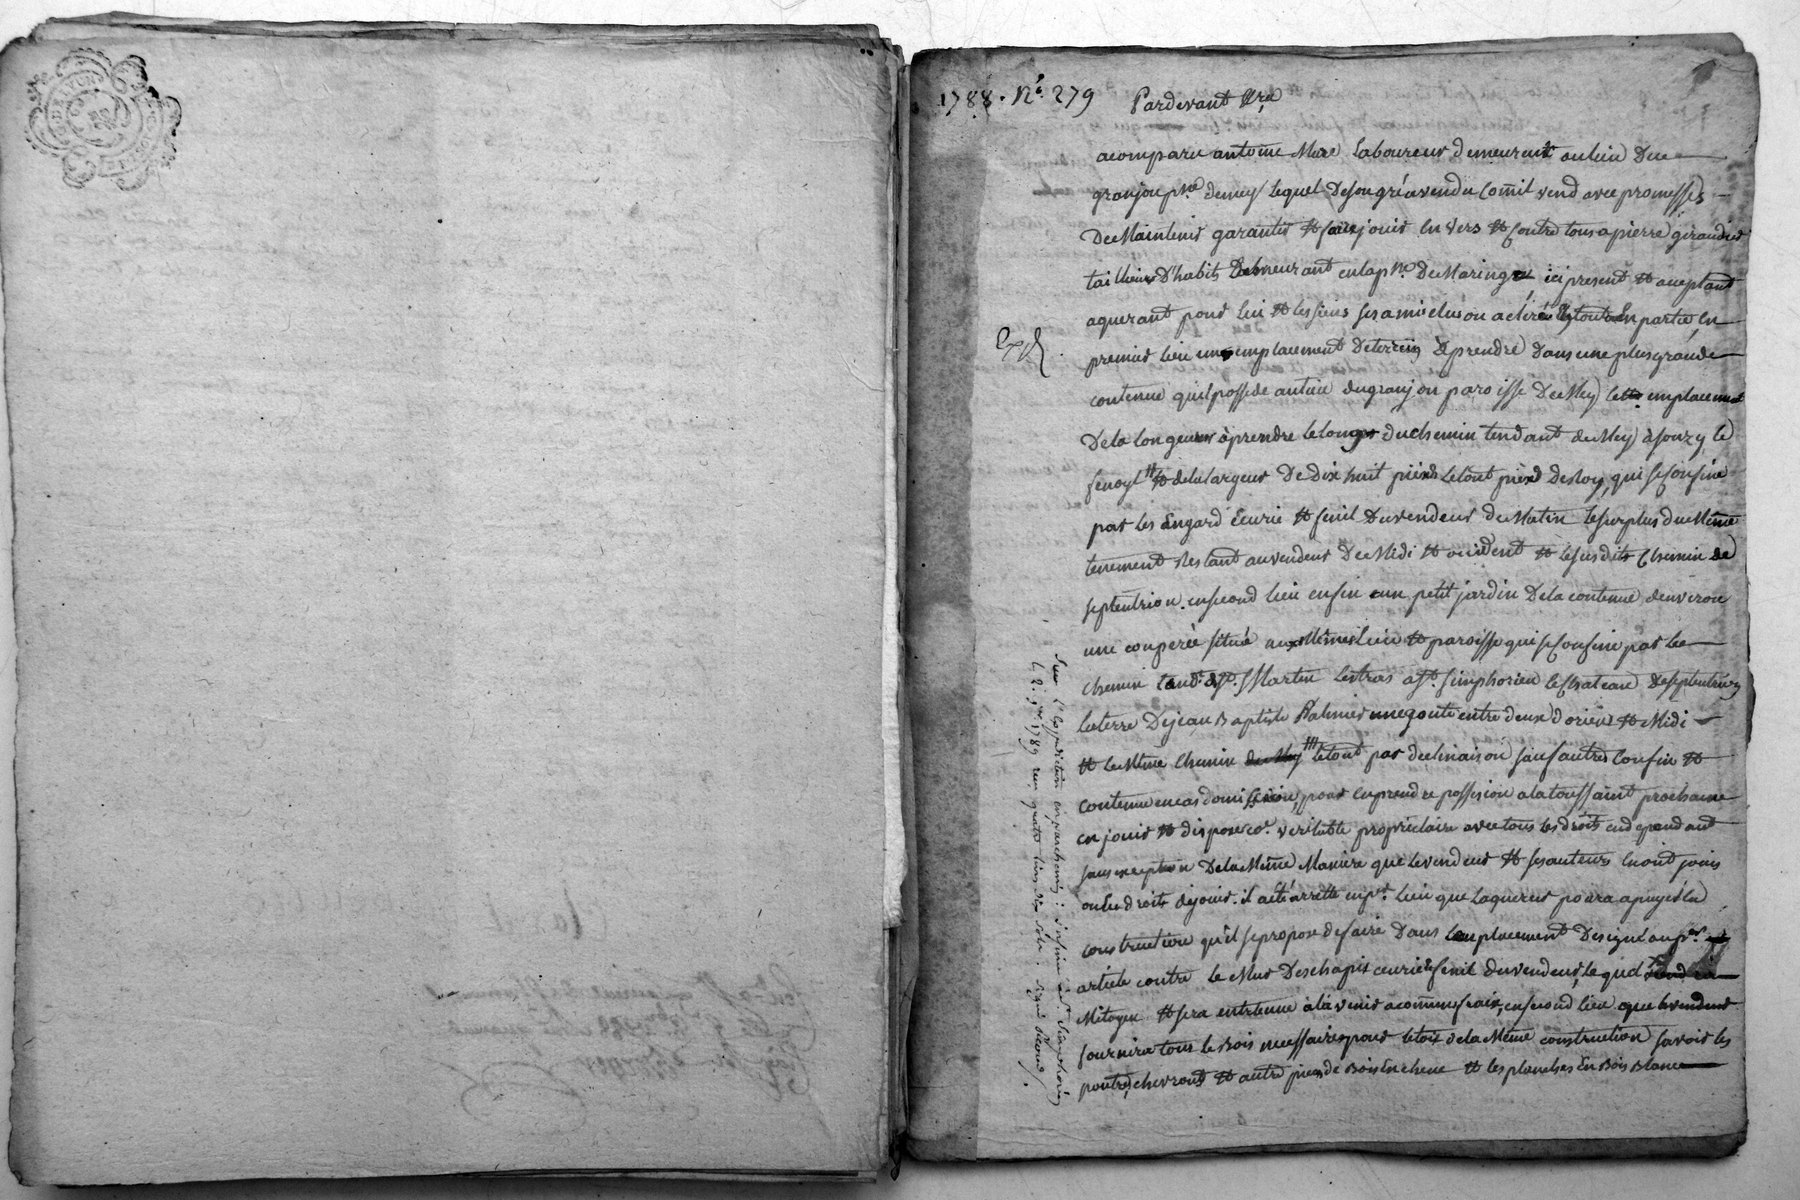 1788. N.º 279
Pardevant &ra
acomparu antoine Mure Laboureur demeurant au lieu Du
granjon psse demeys Lequel De son gré a vendu Comil vend avec promesses
De Maintenir garantir & faire jouir Envers & Contre tous a pierre giraudier
tailleur D'habits Demeurant en la psse De Maringe ici present & aceptant
aquerant pour Lui & les siens ses amis elus ou a elire En tout ou En partie, En
Exp
premier Lieu un emplacement De terrein à prendre Dans une plus grande
contenue quil possede au lieu du granjon paroisse De Mey) emplacement
De la Longeur à prendre le long du chemin tendant de Mey) à souzy le
& de la largeur De Dix huit pieds Le tout pied De Roy, qui se Confine
par les Engard Ecurie & fenil Du vendeur de Matin Le surplus du Même
tenement Restant au vendeur De Midi & occident & Le susdit Chemin de
septentrion. en second Lieu enfin un petit jardin De la contenue d'environ
une couperée située au Même Lieu & paroisse qui se Confine par Le
Chemin tendt de St. Martin Lestras a St. simphorien le Chateau De septentrion
La terre De jean Baptiste une goute entre deux d'orient & Midi
& Le Même Chemin Le tout par declinaison sauf autres Confin &
contenue en cas d'omission, pour en prendre possesion a la toussaint prochaine
en jouir & disposer co.e veritable propriétaire avec tous les droits en dependant
sans exception De la Même Maniere que le vendeur & ses auteurs En ont joui
ou Eu droits de jouir. il a été arretté en pr. Lieu que Laquereur poura apuyer La
construction qu'il se propose de faire Dans Lemplacement Designé au pr.
article contre Le Mur Des chapit ecurie & fenil du vendeur, Le quel
Mitoyen & sera entretenu à la venir a commun fraix, en second Lieu que le vendeur
fournira tous Le Bois necessaires pour le toit de la Même construction savoir les
poutres, chevrons & autre pieces de Bois En chene & les planches En Bois Blanc
Sur L'Expedition en parchemin : à St. Simphorien
Le 2. 1789 reçu quatre